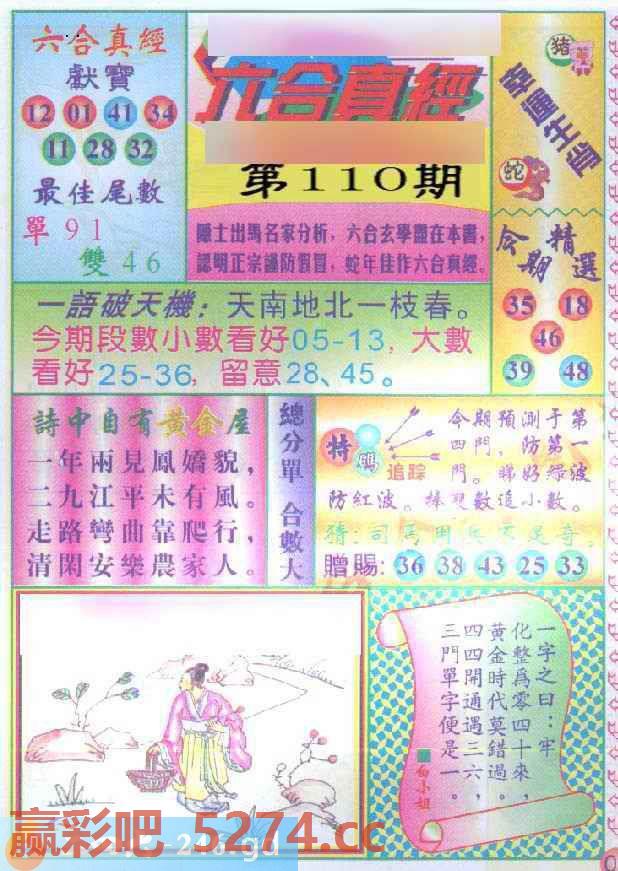 六合真經
獻寶
12 01 41 34
11 28 32
最佳尾數
單 9 1
雙 4 6
六合真經
第110期
隱士出馬名家分析，六合玄學盡在本書，
認明正宗謹防假冒，蛇年佳作六合真經。
豬
蛇
今期精選
35 18
46
39 48
一語破天機：天南地北一枝春。
今期段數小數看好05-13，大數
看好25-36，留意28、45。
詩中自有黃金屋
一年兩見鳳嬌貌，
二九江平未有風。
走路彎曲靠爬行，
清閑安樂農家人。
總分單 合數大
特碼
追踪
今期預測于第
四門，防第一
門。睇好綠波
防紅波。捧雙數追小數。
猜：司馬用兵不足奇。
贈賜：36 38 43 25 33
一字之曰：牢
化整爲零四十來，
黃金時代莫錯過。
四四開通遇三六，
三門單字便是一。
白小姐
赢彩吧 5274.cc